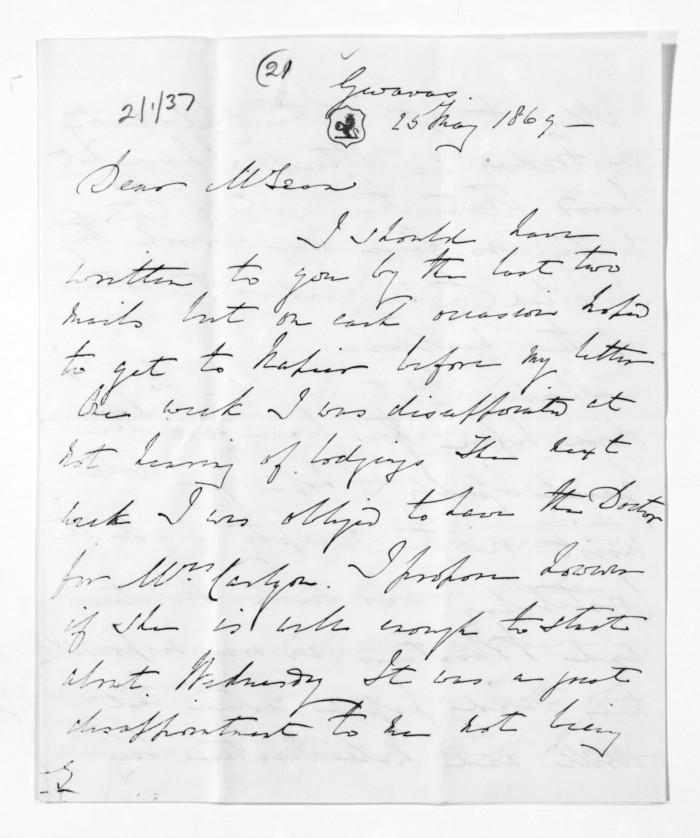 (21
2/1/37
Gwavas
25 May 1869 —
Dear McLean
I should have
written to you by the last two
mails but on each occasion hoped
to get to Napier before my letter
One week I was disappointed at
not hearing of lodgings The next
week I was obliged to have the Doctor
for Mrs Carlyon. I propose however
if she is well enough to start
about Wednesday It was a great
disappointment to me not being